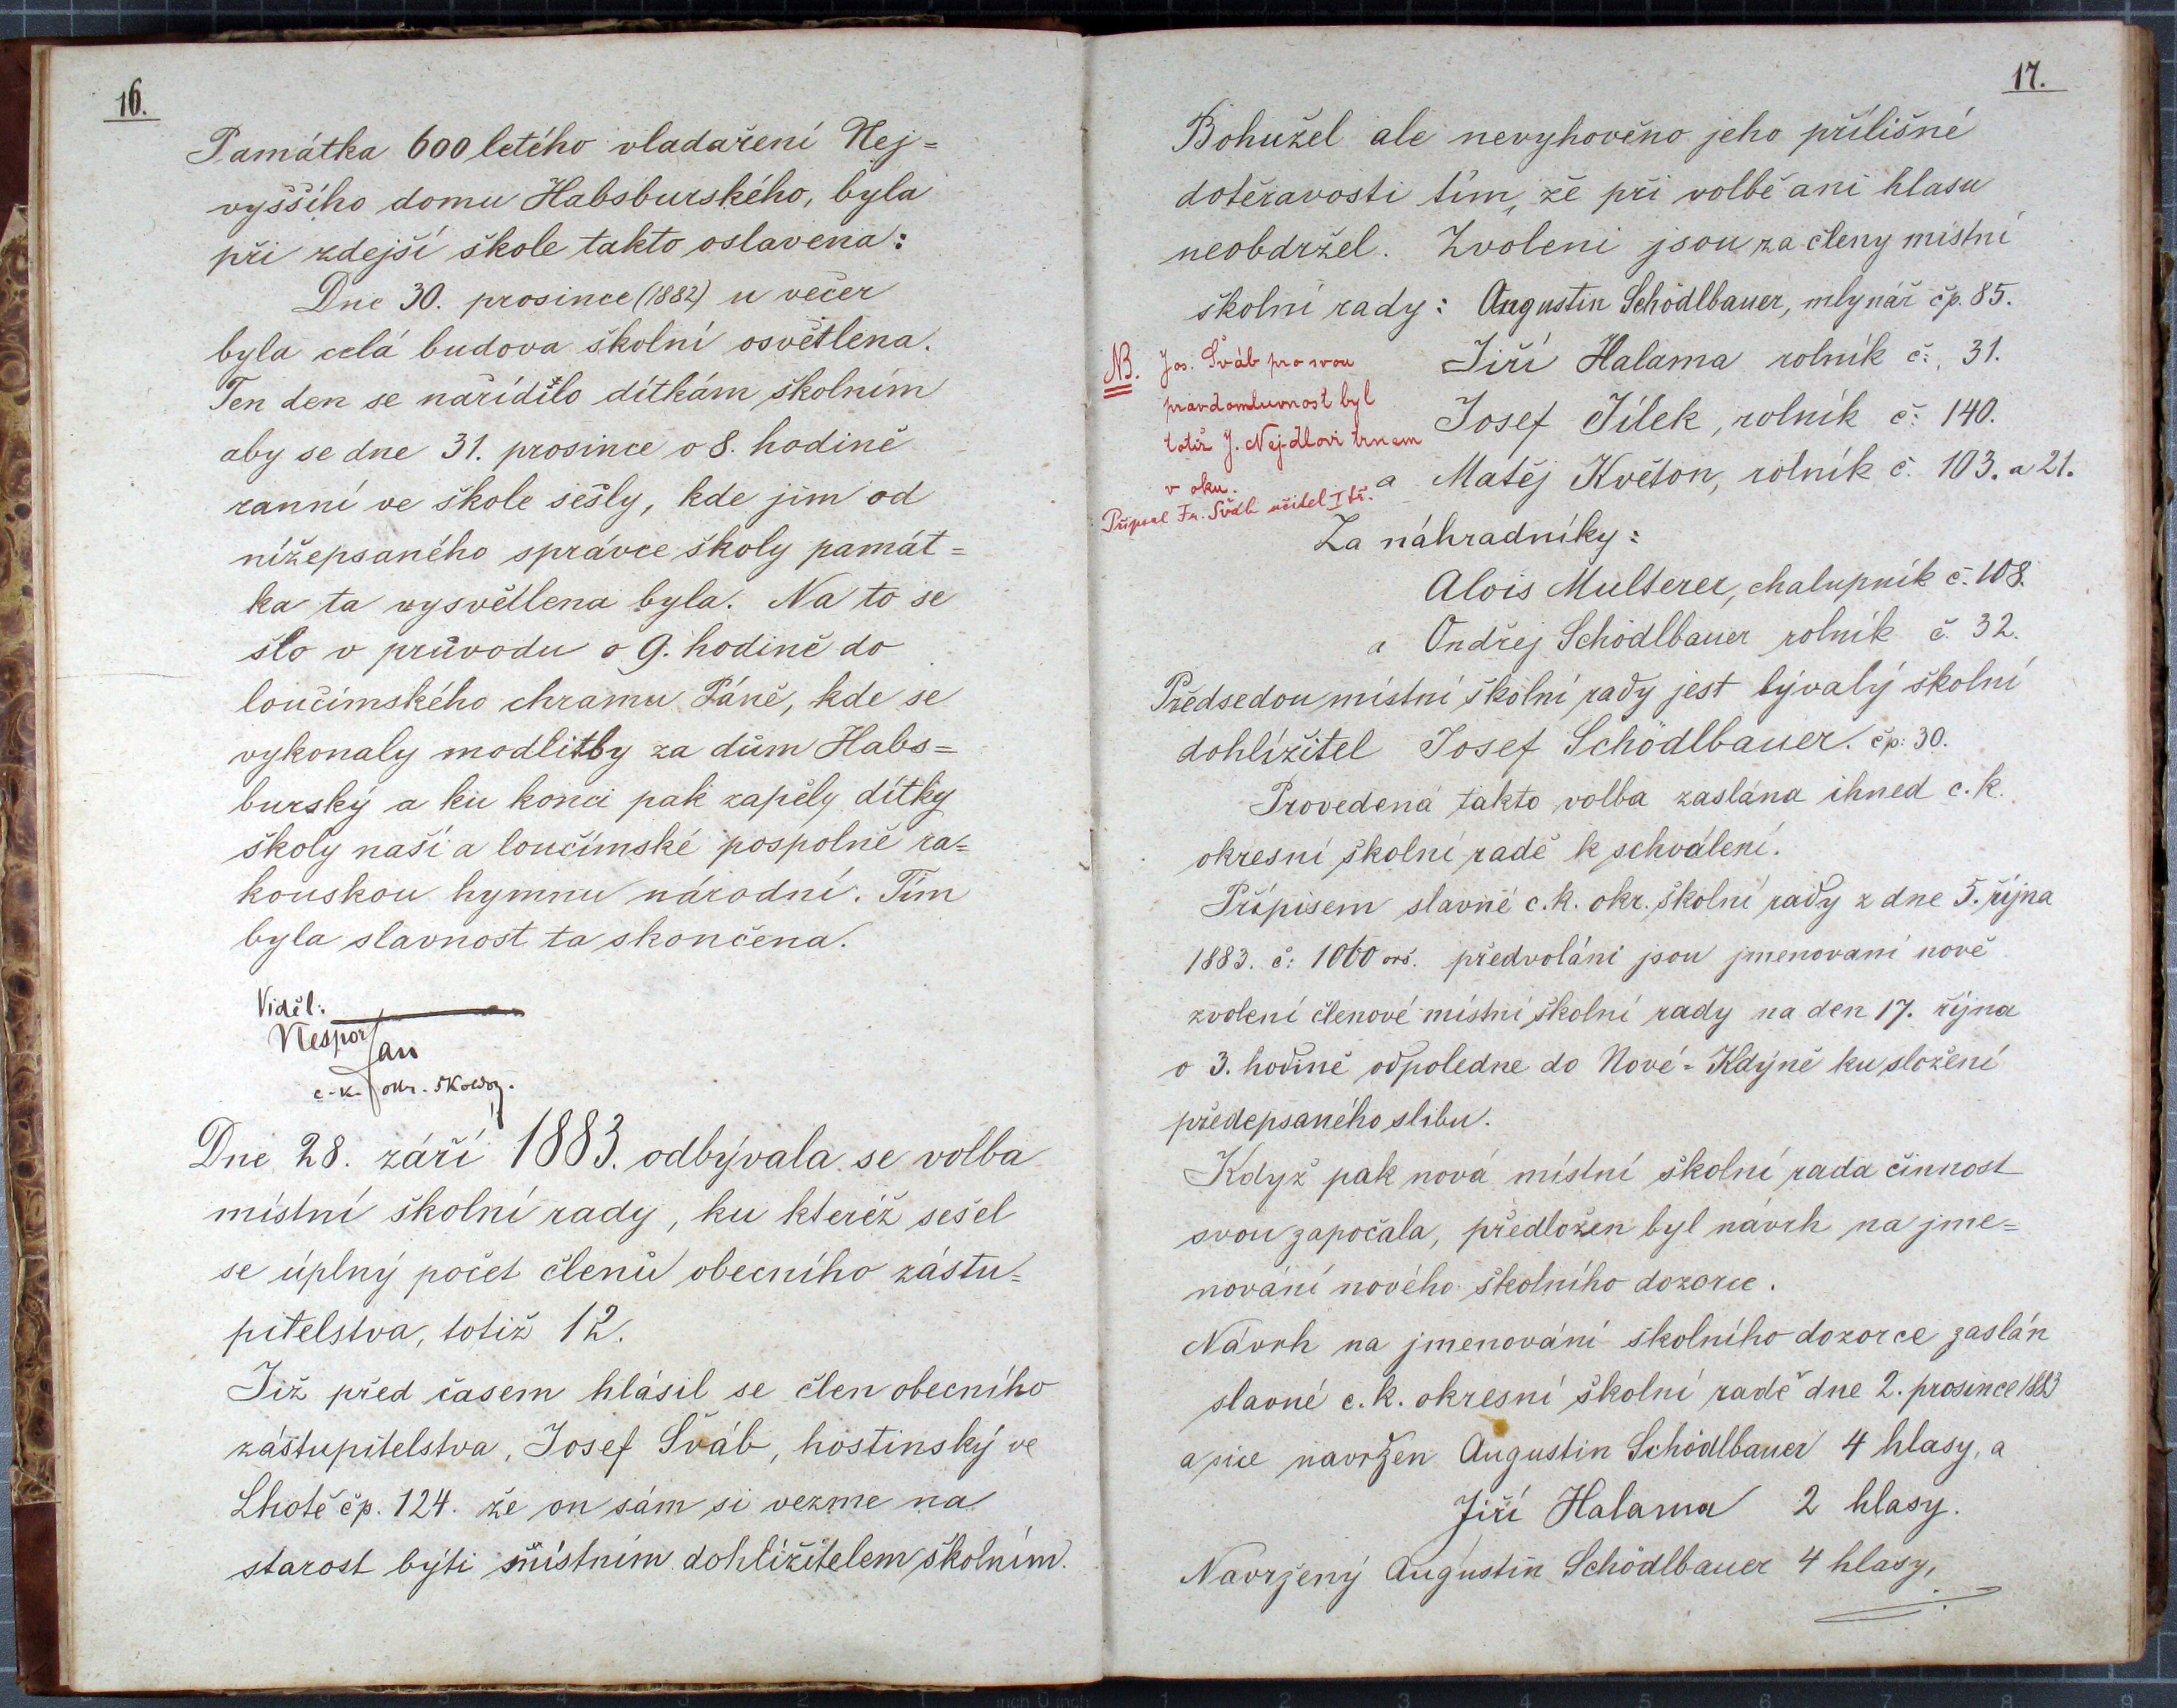 16.
Památka 600 letého vladaření Nej=
vyššího domu Habsburského, byla
při zdejší škole takto oslavena:
Dne 30. prosince (1882) u večer
byla celá budova školní osvětlena.
Ten den se nařídilo dítkám školním
aby se dne 31. prosince o 8. hodině
ranní ve škole sešly, kde jim od
nížepsaného správce školy památ=
ka ta vysvětlena byla. Na to se
šlo v průvodu o 9. hodině do
loučimského chramu Páně, kde se
vykonaly modlitby za dům Habs=
burský a ku konci pak zapěly dítky
školy naší a loučímské pospolně ra=
kouskou hymnu národní. Tím
byla slavnost ta skončena.
Viděl:
Nešpor Jan
c.k. okr. škol. doz.
Dne 28. září 1883. odbývala se volba
místní školní rady, ku kteréž sešel
se úplný počet členů obecního zástu=
pitelstva, totiž 12.
Již před časem hlásil se člen obecního
zástupitelstva, Josef Šváb, hostinský ve
Lhotě čp. 124. že on sám si vezme na
starost býti místním dohlížitelem školním.
17.
Bohužel ale nevyhověno jeho přílišné
dotěravosti tím, že při volbě ani hlasu
neobdržel. Zvoleni jsou za členy místní
školní rady: Augustin Schödlbauer, mlynář čp. 85.
Jiří Halama rolník č. 31.
Josef Jílek, rolník č: 140.
a Matěj Květon, rolník č. 103. a 21.
NB. Jos. Šváb pro svou
pravdomluvnost byl
totiž J. Nejdlovi trnem
v oku.
Připsal Fr. Šváb učitel I tř.
Za náhradníky:
Alois Multerer, chalupník č. 108.
a Ondřej Schödlbauer rolník č. 32.
Předsedou místní školní rady jest bývalý školní
dohlížitel Josef Schödlbauer. čp: 30.
Provedená takto volba zaslána ihned c. k.
okresní školní radě k schválení.
Přípisem slavné c. k. okr. školní rady z dne 5. října
1883. č: 1060 orš. předvoláni jsou jmenovaní nově
zvolení členové místní školní rady na den 17. října
o 3. hodině odpoledne do Nové=Kdýně ku složení
předepsaného slibu.
Když pak nová místní školní rada činnost
svou započala, předložen byl návrh na jme=
nování nového školního dozorce.
Návrh na jmenování školního dozorce zaslán
slavné c. k. okresní školní radě dne 2. prosince 1883
a sice navržen Augustin Schödlbauer 4 hlasy, a
Jiří Halama 2 hlasy.
Navržený Augustin Schödlbauer 4 hlasy,